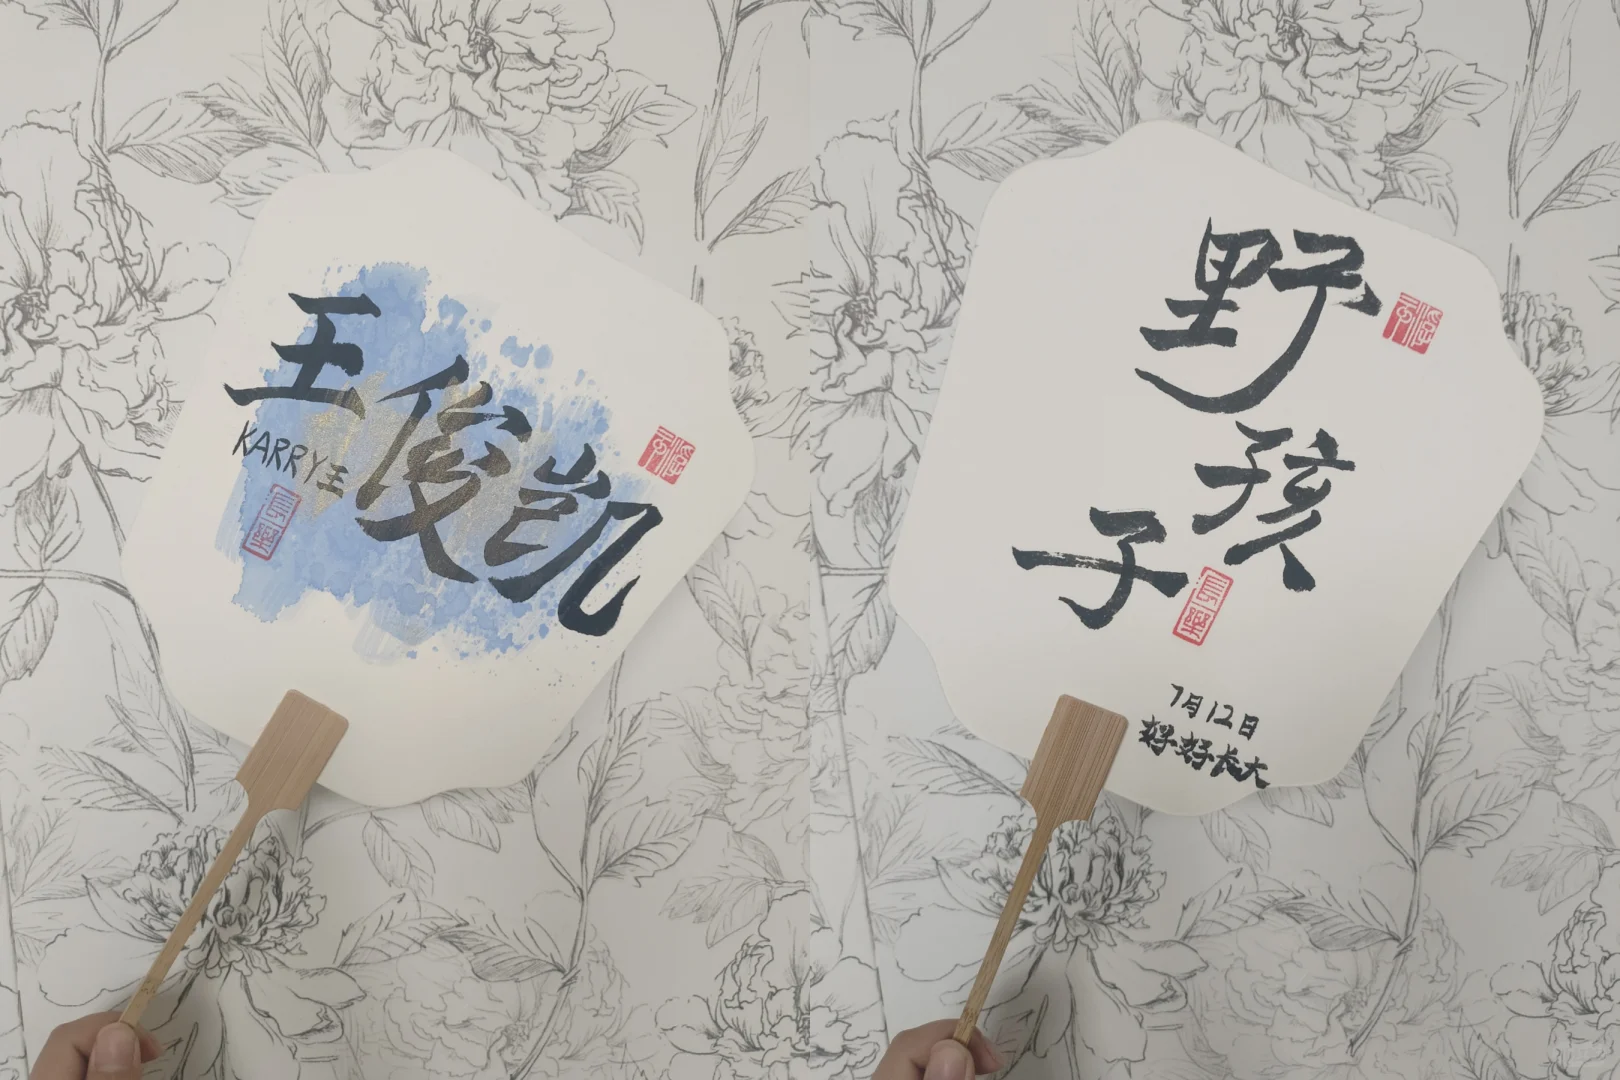 王俊凯
KARRY王
野孩子
7月12日
好好长大